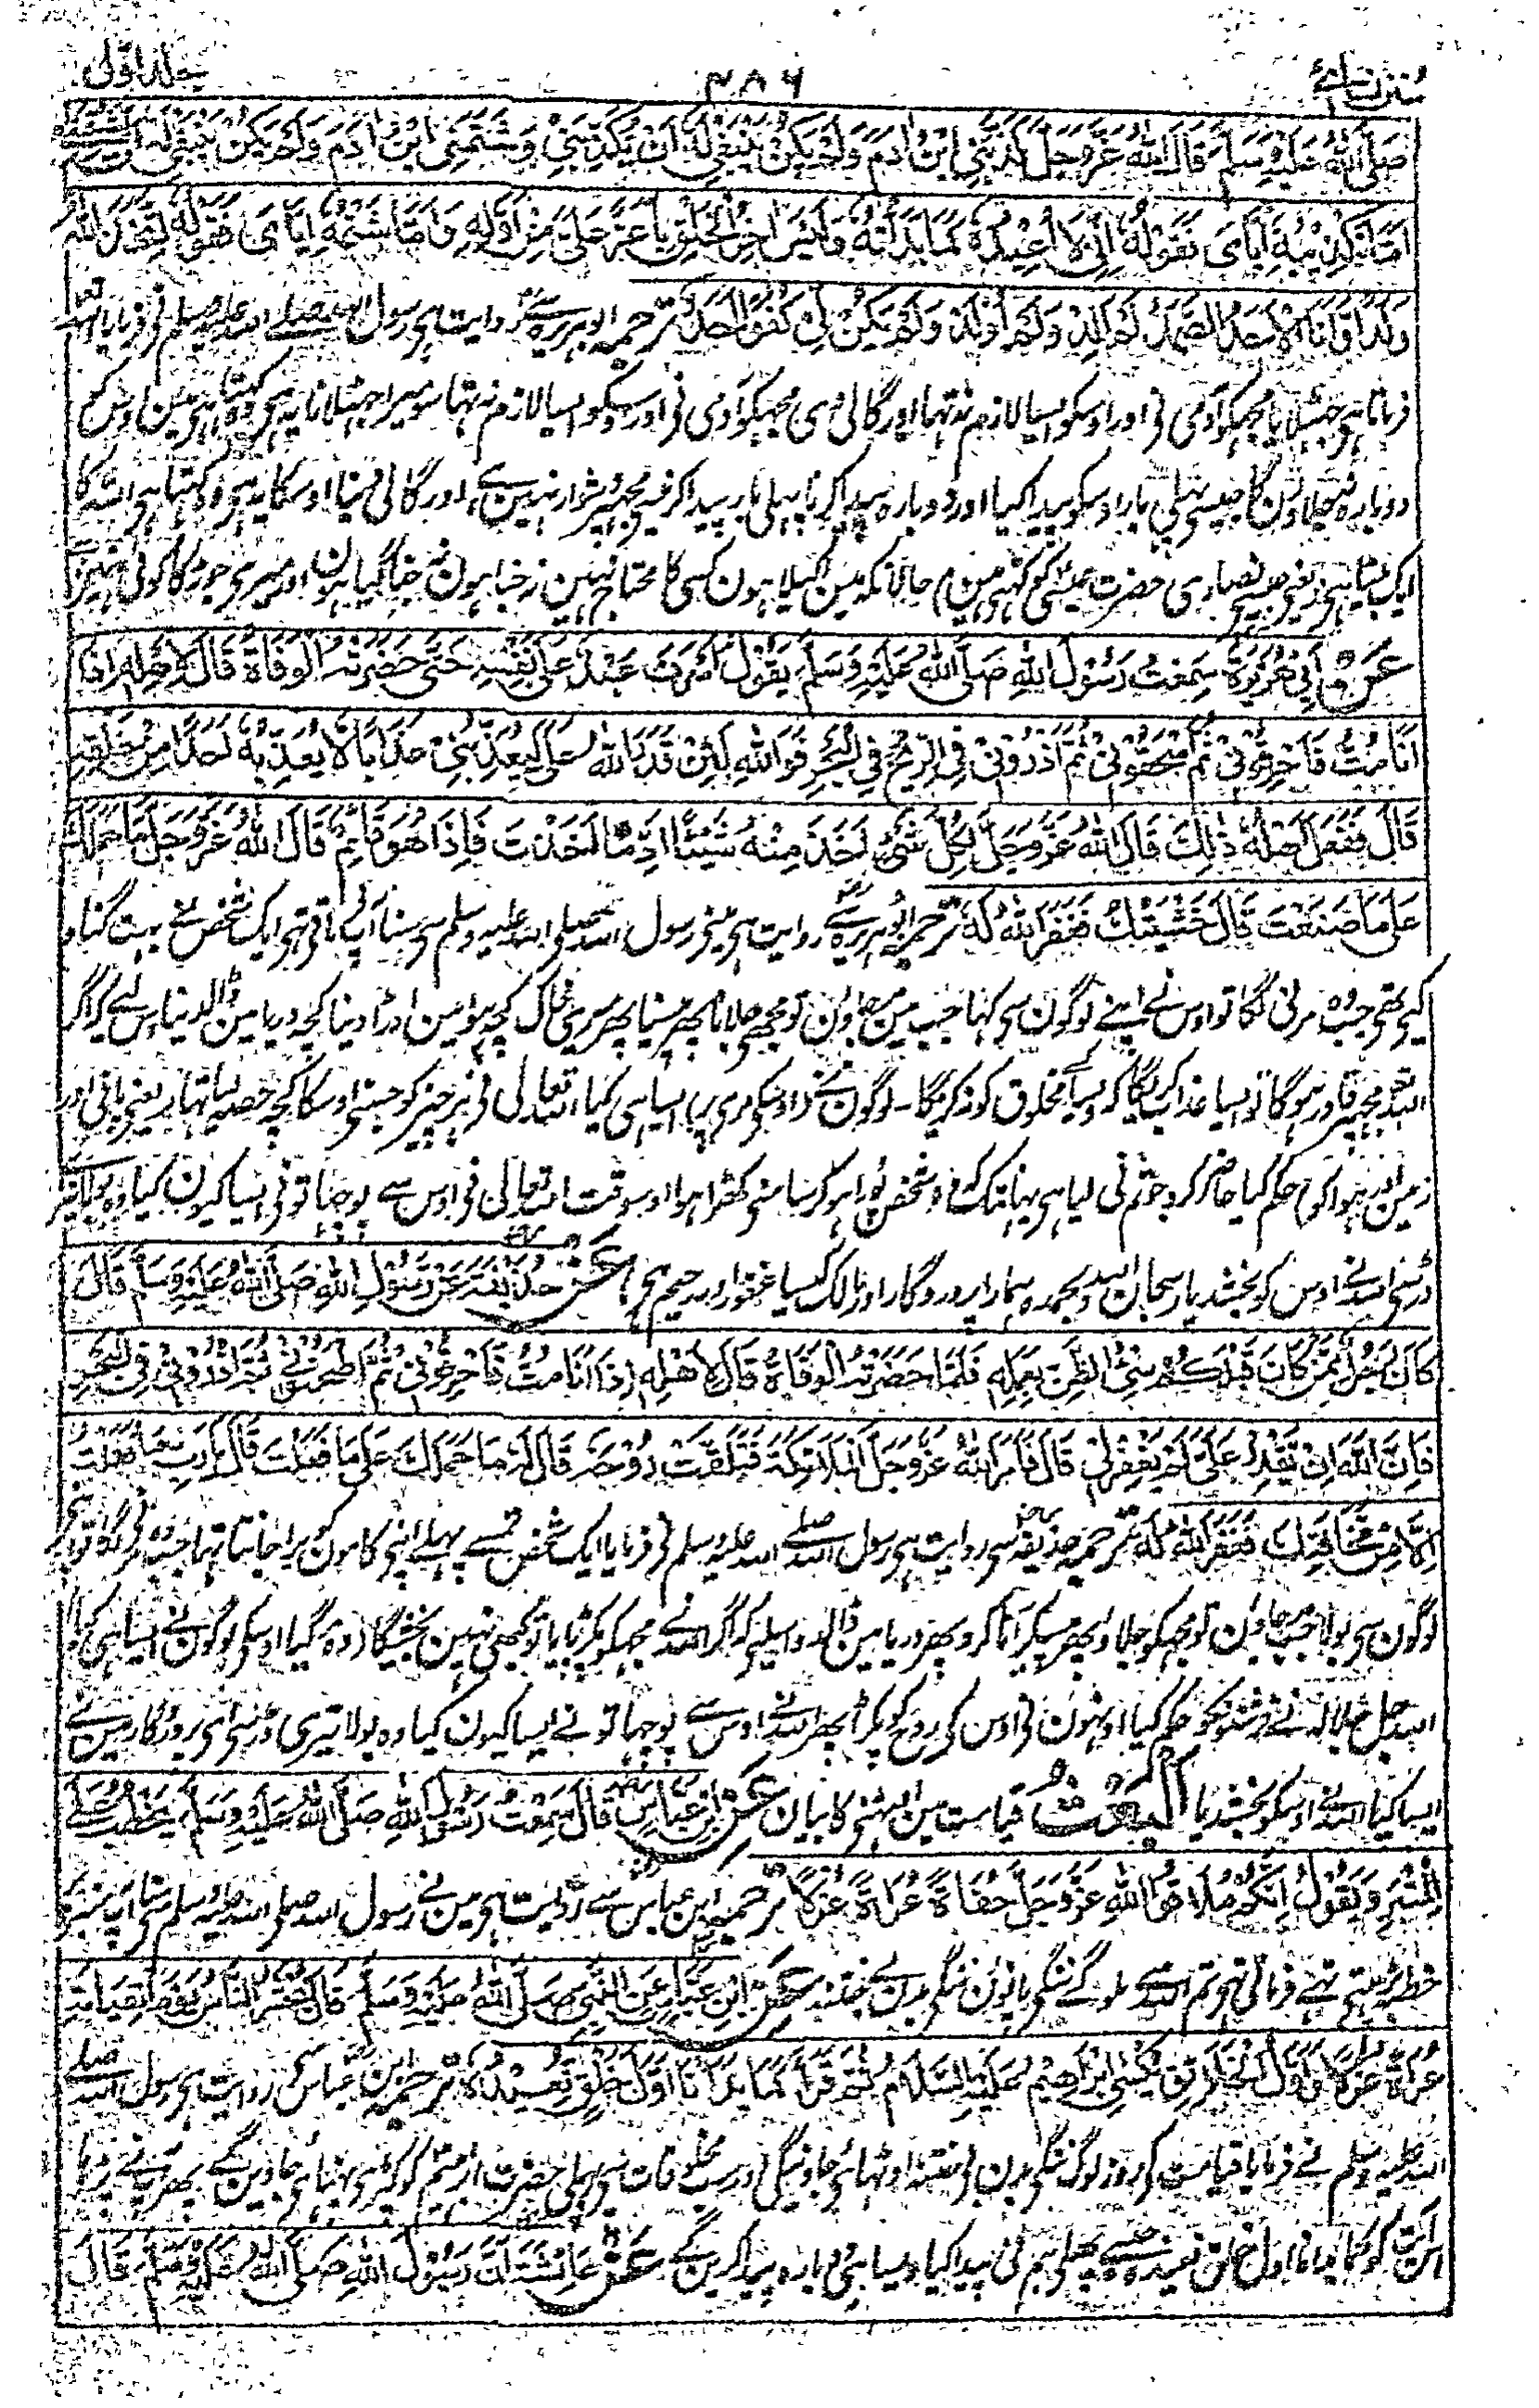 سنن نسائے ۴۸۶ جلد اوّل
صَلَّى اللهُ عَلَيْهِ وَسَلَّمَ قَالَ اللهُ عَزَّوَجَلَّ كَذَّبَنِي ابْنُ اٰدَمَ وَلَمْ يَكُنْ يَنْبَغِي لَهٗ اَنْ يُّكَذِّبَنِي وَشَتَمَنِي ابْنُ اٰدَمَ وَلَمْ يَكُنْ يَنْبَغِي لَهٗ اَنْ يَّشْتِمَنِي
اَمَّا تَكْذِيْبُهٗ اِيَّايَ فَقَوْلُهٗ اِنِّي لَا اُعِيْدُهٗ كَمَا بَدَأْتُهٗ وَلَيْسَ اٰخِرُ الْخَلْقِ بِاَعَزَّ عَلَيَّ مِنْ اَوَّلِهٖ وَاَمَّا شَتْمُهٗ اِيَّايَ فَقَوْلُهٗ اتَّخَذَ اللهُ
وَلَدًا وَّاَنَا اللهُ الْاَحَدُ الصَّمَدُ لَمْ اَلِدْ وَلَمْ اُوْلَدْ وَلَمْ يَكُنْ لِّي كُفُوًا اَحَدٌ ترجمہ ابوہریرہ سے روایت ہی رسول اللہ صلے اللہ علیہ وسلم نی فرمایا اللہ تعالی
فرماتا ہی جھٹلایا مجھکو آدمی نی اور اوسکو ایسا لازم نہ تھا اور گالی دی مجھکو آدمی نی اور اوسکو ایسا لازم نہ تھا سو میرا جھٹلانا یہ ہی کہ وہ کہتا ہی مین اوس کو
دوبارہ نہ جلاؤن گا جیسی پہلی بار اوسکو پیدا کیا اور دوبارہ پیدا کرنا پہلی بار پیدا کرنیسے مجھپر دشوار نہین ہے، اور گالی دینا اوسکا یہ ہی وہ کہتا ہی اللہ کا
ایک بیٹا ہی (یعنی جیسے نصاری حضرت عیسٰی کو کہتی ہین) حالانکہ مین اکیلا ہون کسی کا محتاج نہین نہ جنا ہون نہ جنا گیا ہون اور میری جوڑ کا کوئی نہین
عَنْ اَبِي هُرَيْرَةَ سَمِعْتُ رَسُوْلَ اللهِ صَلَّى اللهُ عَلَيْهِ وَسَلَّمَ يَقُوْلُ اَسْرَفَ عَبْدٌ عَلٰى نَفْسِهٖ حَتّٰى حَضَرَتْهُ الْوَفَاةُ قَالَ لِاَهْلِهٖ اِذَا
اَنَا مُتُّ فَاَحْرِقُوْنِي ثُمَّ اسْحَقُوْنِي ثُمَّ اذْرُوْنِي فِي الرِّيْحِ فِي الْبَحْرِ فَوَاللهِ لَئِنْ قَدَرَ اللهُ عَلَيَّ لَيُعَذِّبَنِّي عَذَابًا لَّا يُعَذِّبُهٗ اَحَدًا مِّنْ خَلْقِهٖ
قَالَ فَفَعَلَ اَهْلُهٗ ذٰلِكَ قَالَ اللهُ عَزَّوَجَلَّ لِكُلِّ شَيْءٍ اَخَذَ مِنْهُ شَيْئًا اَدِّ مَا اَخَذْتَ فَاِذَا هُوَ قَائِمٌ قَالَ اللهُ عَزَّوَجَلَّ مَا حَمَلَكَ
عَلٰى مَا صَنَعْتَ قَالَ خَشْيَتُكَ فَغَفَرَ اللهُ لَهٗ ترجمہ ابوہریرہ سے روایت ہی مینے رسول اللہ صلی اللہ علیہ وسلم سی سنا آپ فرماتی تھی ایک شخص نے بہت گناہ
کیی تھی جب وہ مرنی لگا تو اوس نے اپنے لوگون سی کہا جب مین مر جاؤن تو مجھے جلانا پھر پیسنا پھر میری خاک کچھ ہوا مین اوڑا دینا کچھ دریا مین ڈالدینا اس لیے کہ اگر
اللہ مجھپر قادر ہوگا تو ایسا عذاب کریگا کہ ویسا کسی مخلوق کو نہ کریگا۔ لوگون نے (اوسکی مری پر) ایسا ہی کیا، اللہ تعالی نی ہر چیز کو جسنی اوسکا کچھ حصہ لیا تھا (یعنی پانی اور
زمین اور ہوا کو) حکم کیا حاضر کرو جو تم نی لیا ہی یہانتک کہ وہ شخص پورا ہوکر سامنی کھڑا ہوا اوسوقت اللہ تعالی نی اوس سے پوچھا تو نی ایسا کیون کیا وہ بولا تیری
ڈر سی اللہ نے اوس کو بخشدیا سبحان اللہ وبحمدہ ہمارا پروردگار اور مالک کیسا غفور اور رحیم ہی عَنْ حُذَيْفَةَ عَنْ رَّسُوْلِ اللهِ صَلَّى اللهُ عَلَيْهِ وَسَلَّمَ قَالَ
كَانَ رَجُلٌ مِّمَّنْ كَانَ قَبْلَكُمْ يُسِيْءُ الظَّنَّ بِعَمَلِهٖ فَلَمَّا حَضَرَتْهُ الْوَفَاةُ قَالَ لِاَهْلِهٖ اِذَا اَنَا مُتُّ فَاَحْرِقُوْنِي ثُمَّ اطْحَنُوْنِي ثُمَّ اذْرُوْنِي فِي الْبَحْرِ
فَاِنَّ اللهَ اِنْ يَّقْدِرْ عَلَيَّ لَمْ يَغْفِرْ لِي قَالَ فَاَمَرَ اللهُ عَزَّوَجَلَّ الْمَلَائِكَةَ فَتَلَقَّتْ رُوْحَهٗ قَالَ لَهٗ مَا حَمَلَكَ عَلٰى مَا فَعَلْتَ قَالَ يَا رَبِّ مَا فَعَلْتُ
اِلَّا مِنْ مَّخَافَتِكَ فَغَفَرَ اللهُ لَهٗ ترجمہ حذیفہ سی روایت ہی رسول اللہ صلے اللہ علیہ وسلم نی فرمایا ایک شخص تمسے پہلے اپنی کامون کو برا جانتا تھا جب وہ مرنی لگا تو اپنی
لوگون سی بولا جب مین مر جاؤن تو مجھکو جلاؤ پھر پیسکر آٹا کرو پھر دریا مین ڈالدو اسلیے کہ اگر اللہ نے مجھکو پکڑ پایا تو کبھی نہین بخشیگا (وہ مر گیا) اوسکو لوگون نے ایسا ہی کیا
اللہ جل جلالہ نے فرشتونکو حکم کیا اونہون نی اوس کی روح کو پکڑا پھر اللہ نے اوس سے پوچھا تو نے ایسا کیون کیا وہ بولا تیری ڈر سی ای پروردگار مین نے
ایسا کیا اللہ نے اوسکو بخشدیا اَلْبَعْثُ قیامت مین اوٹھنی کا بیان عَنْ ابْنِ عَبَّاسٍ قَالَ سَمِعْتُ رَسُوْلَ اللهِ صَلَّى اللهُ عَلَيْهِ وَسَلَّمَ يَخْطُبُ عَلَى
الْمِنْبَرِ وَيَقُوْلُ اِنَّكُمْ مُلَاقُوا اللهَ عَزَّوَجَلَّ حُفَاةً عُرَاةً غُرْلًا ترجمہ ابن عباس سے روایت ہی مین نے رسول اللہ صلی اللہ علیہ وسلم سی سنا آپ منبر پر
خطبہ پڑھتی تھے فرماتی تھی تم اللہ سے ملوگے ننگی پانؤن ننگی بدن بے ختنہ عَنْ ابْنِ عَبَّاسٍ عَنِ النَّبِيِّ صَلَّى اللهُ عَلَيْهِ وَسَلَّمَ قَالَ يُحْشَرُ النَّاسُ يَوْمَ الْقِيَامَةِ
عُرَاةً غُرْلًا وَّاَوَّلُ الْخَلَائِقِ يُكْسٰى اِبْرَاهِيْمُ عَلَيْهِ السَّلَامُ ثُمَّ قَرَأَ كَمَا بَدَأْنَا اَوَّلَ خَلْقٍ نُّعِيْدُهٗ ترجمہ ابن عباس سی روایت ہی رسول اللہ صلے
اللہ علیہ وسلم نے فرمایا قیامت کی روز لوگ ننگی بدن بی ختنہ اوٹھائی جاوینگی اور سب مخلوقات سی پہلی حضرت ابراہیم کو کپڑی پہنائی جاوین گے پھر آپنے پڑھا
اس آیت کو کما بدأنا اول خلق نعیدہ جیسے پہلی ہم نی پیدا کیا ویسا ہی دوبارہ پیدا کرین گے عَنْ عَائِشَةَ اَنَّ رَسُوْلَ اللهِ صَلَّى اللهُ عَلَيْهِ وَسَلَّمَ قَالَ